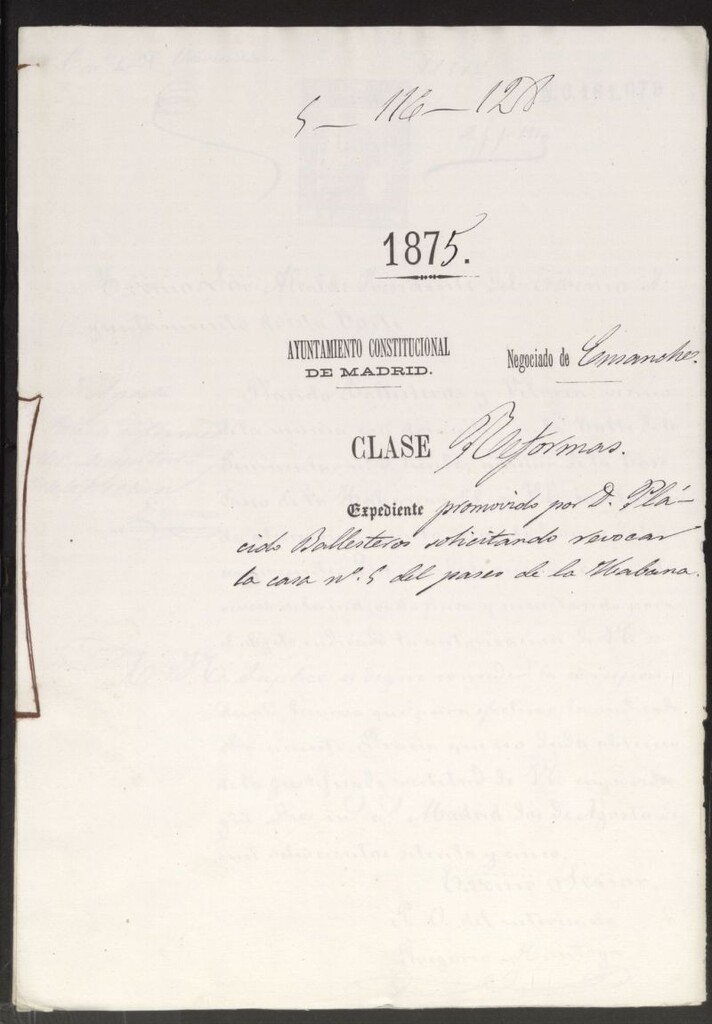 5 - 116 - 128
1875.
AYUNTAMIENTO CONSTITUCIONAL
DE MADRID.
Negociado de Ensanche.
CLASE Reformas.
Expediente promovido por D. Plá-
cido Ballesteros solicitando revocar
la casa nº. 5 del paseo de la Habana.